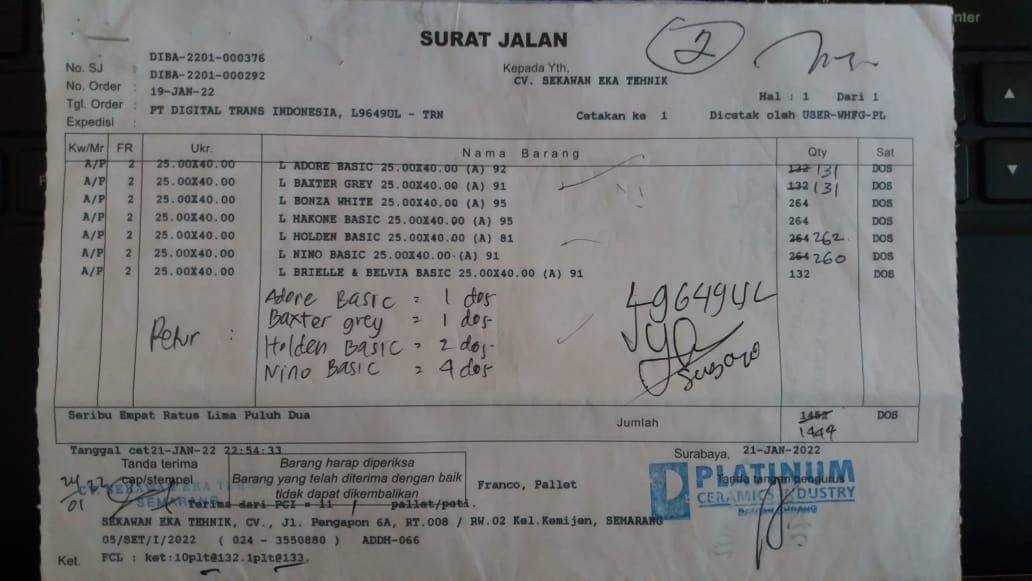 SURAT JALAN
2
No. SJ : DIBA-2201-000376
No. Order : DIBA-2201-000292
Tgl. Order : 19-JAN-22
Expedisi : PT DIGITAL TRANS INDONESIA, L9649UL - TRN
Kepada Yth,
CV. SEKAWAN EKA TEHNIK
Hal : 1 Dari 1
Cetakan ke 1 Dicetak oleh USER-WHFG-PL
Kw/Mr FR Ukr. Nama Barang Qty Sat
A/P 2 25.00X40.00 L ADORE BASIC 25.00X40.00 (A) 92 132 131 DOS
A/P 2 25.00X40.00 L BAXTER GREY 25.00X40.00 (A) 91 132 131 DOS
A/P 2 25.00X40.00 L BONZA WHITE 25.00X40.00 (A) 95 264 DOS
A/P 2 25.00X40.00 L HAKONE BASIC 25.00X40.00 (A) 95 264 DOS
A/P 2 25.00X40.00 L HOLDEN BASIC 25.00X40.00 (A) 81 264 262 DOS
A/P 2 25.00X40.00 L NINO BASIC 25.00X40.00 (A) 91 264 260 DOS
A/P 2 25.00X40.00 L BRIELLE & BELVIA BASIC 25.00X40.00 (A) 91 132 DOS
Retur :
Adore Basic = 1 dos
Baxter grey = 1 dos
Holden Basic = 2 dos
Nino Basic = 4 dos
L9649UL
Seribu Empat Ratus Lima Puluh Dua Jumlah 1452 DOS
1444
Tanggal cet21-JAN-22 22:54:33
Surabaya, 21-JAN-2022
Tanda terima
cap/stempel
24/01 22
CV. SEKAWAN EKA TEHNIK
SEMARANG
Barang harap diperiksa
Barang yang telah diterima dengan baik
tidak dapat dikembalikan
Franco, Pallet
Tanda tangan pengurus
PLATINUM
CERAMICS INDUSTRY
Terima dari PCI = 11 pallet/peti.
SEKAWAN EKA TEHNIK, CV., Jl. Pengapon 6A, RT.008 / RW.02 Kel.Kemijen, SEMARANG
05/SET/I/2022 ( 024 - 3550880 ) ADDH-066
Ket. FCL : ket:10plt@132.1plt@133.